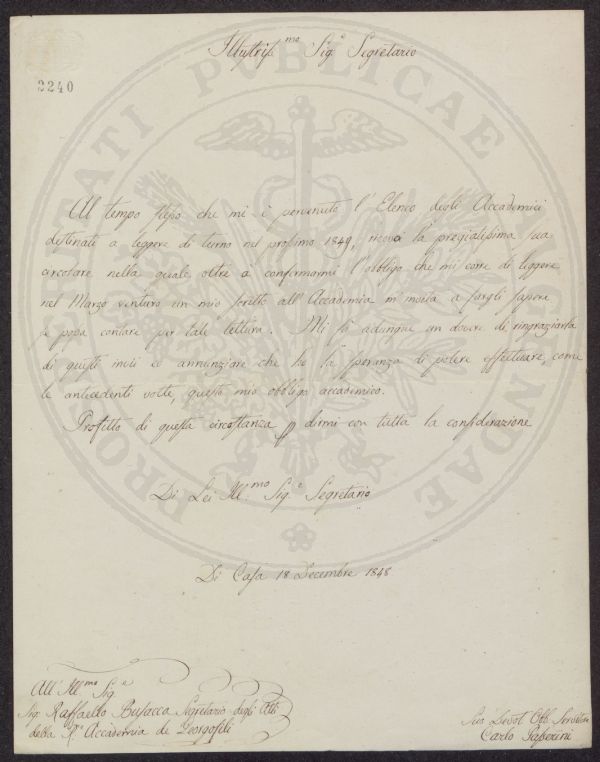 Illustriss.mo Sig.e Segretario
2240
Al tempo stesso che mi è pervenuto l'Elenco degli Accademici
destinati a leggere di turno nel prossimo 1849, ricevei la pregiatissima sua
circolare nella quale oltre a confermarmi l'obbligo che mi corre di leggere
nel Marzo venturo un mio scritto all'Accademia m'invita a fargli sapere
se possa contare per tale lettura. Mi fò adunque un dovere di ringraziarla
di questi inviti ed annunziare che ho la speranza di potere effettuare, come
le antecedenti volte, questo mio obbligo accademico.
Profitto di questa circostanza p dirmi con tutta la considerazione
Di Lei Ill.mo Sig.e Segretario
Di Casa 18 Decembre 1848
All' Ill.mo Sig.e
Sig. Raffaello Busacca Segretario degli Atti
della R. Accademia de Georgofili
Suo Devot. Obb. Servitore
Carlo Passerini
PROSPERITATI PUBLICAE AUGENDAE